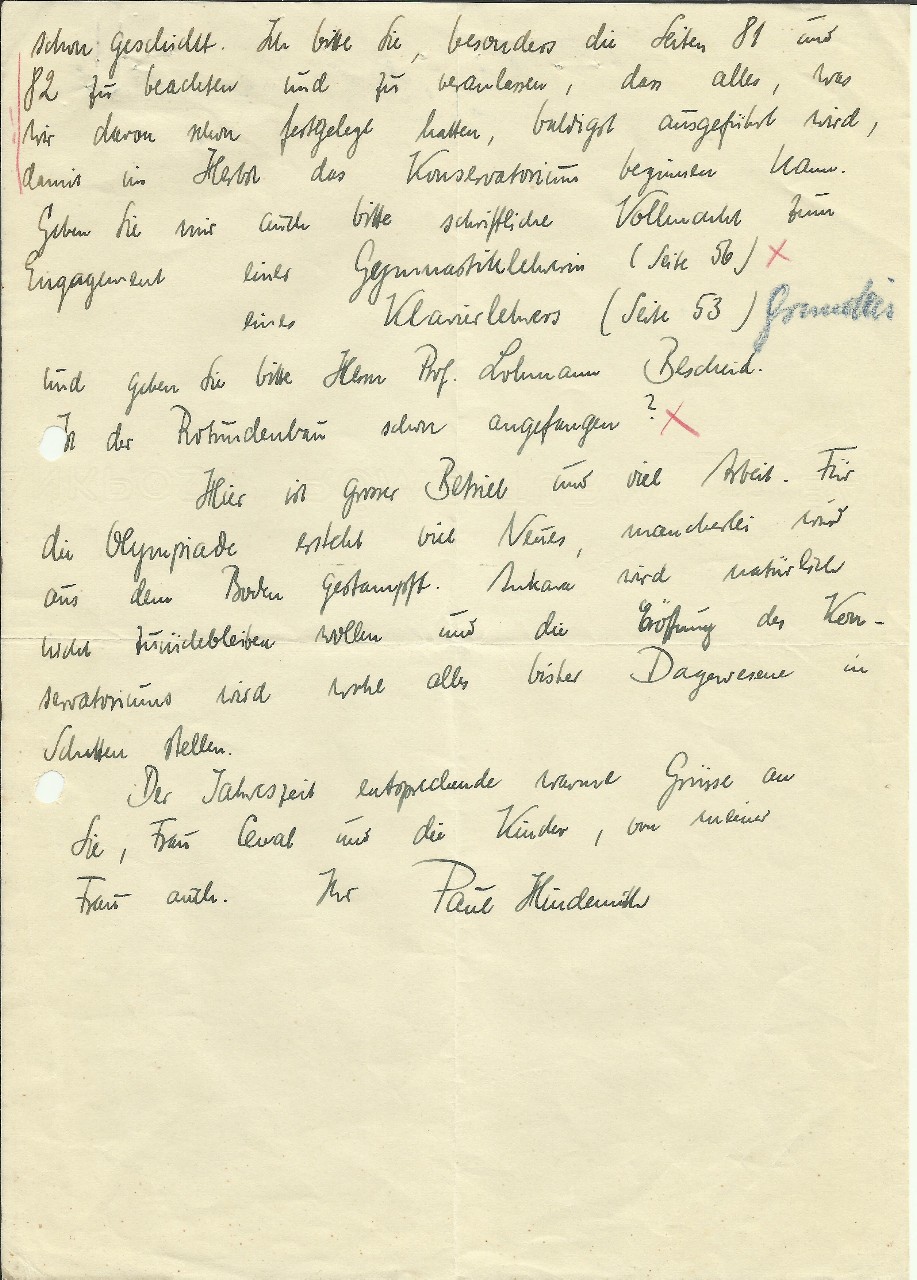 schon geschickt. Ich bitte Sie, besonders die Seiten 81 und
82 zu beachten und zu veranlassen, dass alles, was
wir davon schon festgelegt hatten, baldigst ausgeführt wird,
damit im Herbst das Konservatorium beginnen kann.
Geben Sie mir auch bitte schriftliche Vollmacht zum
Engagement einer Gymnastiklehrerin (Seite 56) x
eines Klavierlehrers (Seite 53)
und geben Sie bitte Herrn Prof. Lohmann Bescheid.
Ist der Rotundenbau schon angefangen? x
Hier ist grosser Betrieb und viel Arbeit. Für
die Olympiade ersteht viel Neues, mancherlei wird
aus dem Boden gestampft. Ankara wird natürlich
nicht zurückbleiben wollen und die Eröffnung des Kon-
servatoriums wird wohl alles bisher Dagewesene in
Schatten stellen.
Der Jahreszeit entsprechende warme Grüsse an
Sie, Frau Cevat und die Kinder, von meiner
Frau auch. Ihr Paul Hindemith